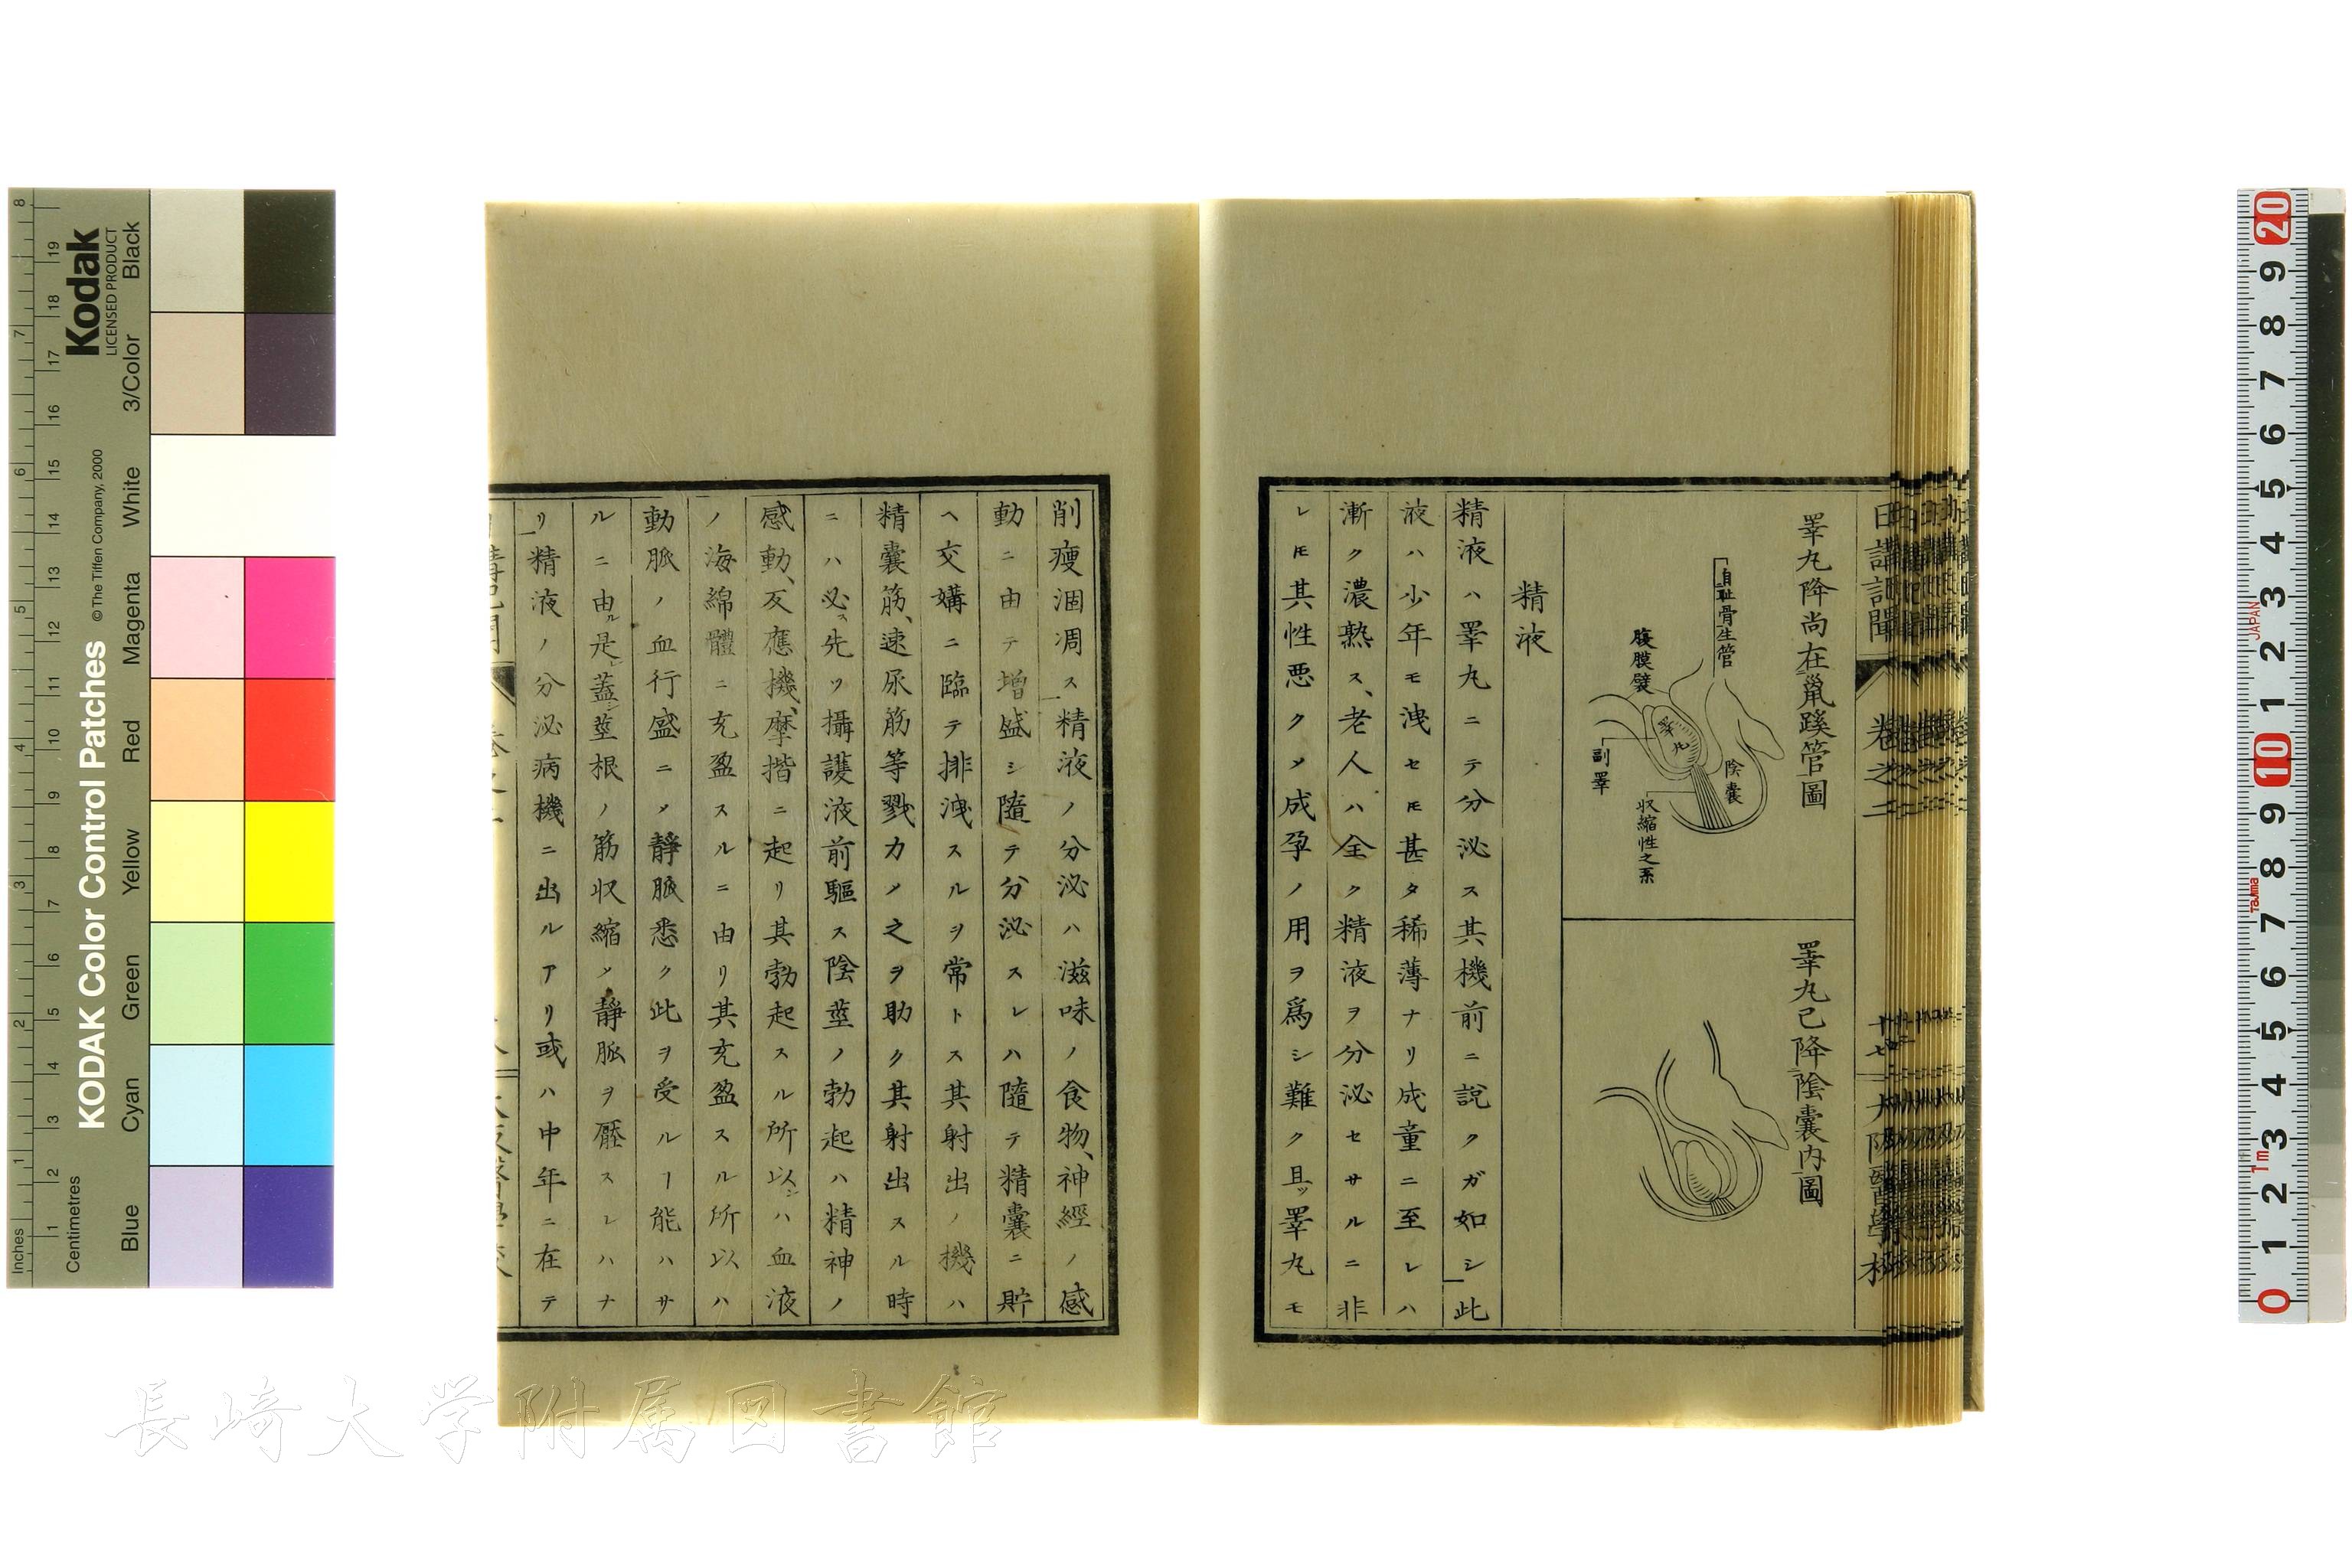 日講記聞 卷之二 十七 大阪醫學校
睪丸降尚在鼠蹊管圖
自耻骨生管
腹膜襞
睪丸
副睪
陰囊
収縮性之系
睪丸已降陰囊内圖
精液
精液ハ睪丸ニテ分泌ス其機前ニ説クガ如シ此
液ハ少年モ洩セ𪜈甚タ稀薄ナリ成童ニ至レハ
漸ク濃熟ス、老人ハ全ク精液ヲ分泌セサルニ非
レ𪜈其性悪クメ成孕ノ用ヲ爲シ難ク且ッ睪丸モ
削瘦涸凋ス精液ノ分泌ハ滋味ノ食物、神經ノ感
動ニ由テ増盛シ隨テ分泌スレハ隨テ精囊ニ貯
ヘ交媾ニ臨テ排洩スルヲ常トス其射出ノ機ハ
精囊筋、速尿筋等戮力ノ之ヲ助ク其射出スル時
ニハ必ス先ツ攝護液前驅ス陰莖ノ勃起ハ精神ノ
感動、反應機、摩揩ニ起リ其勃起スル所以ンハ血液
ノ海綿體ニ充盈スルニ由リ其充盈スル所以ハ
動脈ノ血行盛ニメ靜脈悉ク此ヲ受ルヿ能ハサ
ルニ由ル是レ蓋シ莖根ノ筋収縮ノ靜脈ヲ壓スレハナ
リ精液ノ分泌病機ニ出ルアリ或ハ中年ニ在テ
Kodak
LICENSED PRODUCT
KODAK Color Control Patches
© The Tiffen Company, 2000
Inches
Centimetres
Blue Cyan Green Yellow Red Magenta White 3/Color Black
1 2 3 4 5 6 7 8
1 2 3 4 5 6 7 8 9 10 11 12 13 14 15 16 17 18 19
0 1 2 3 4 5 6 7 8 9 10 1 2 3 4 5 6 7 8 9 20
1m
Tajima
JAPAN
長崎大学附属図書館